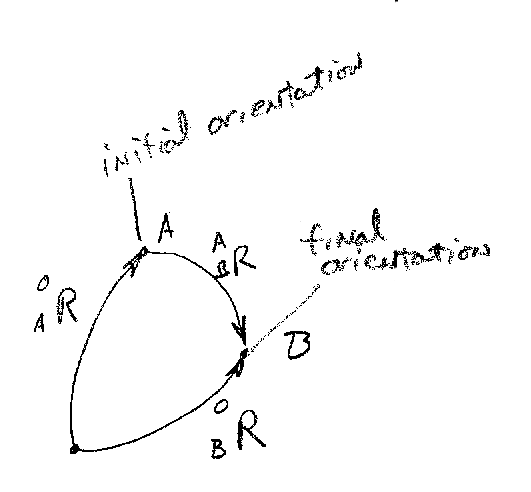 initial orientation
A
A
B R
final
orientation
O
A R
B
O
B R